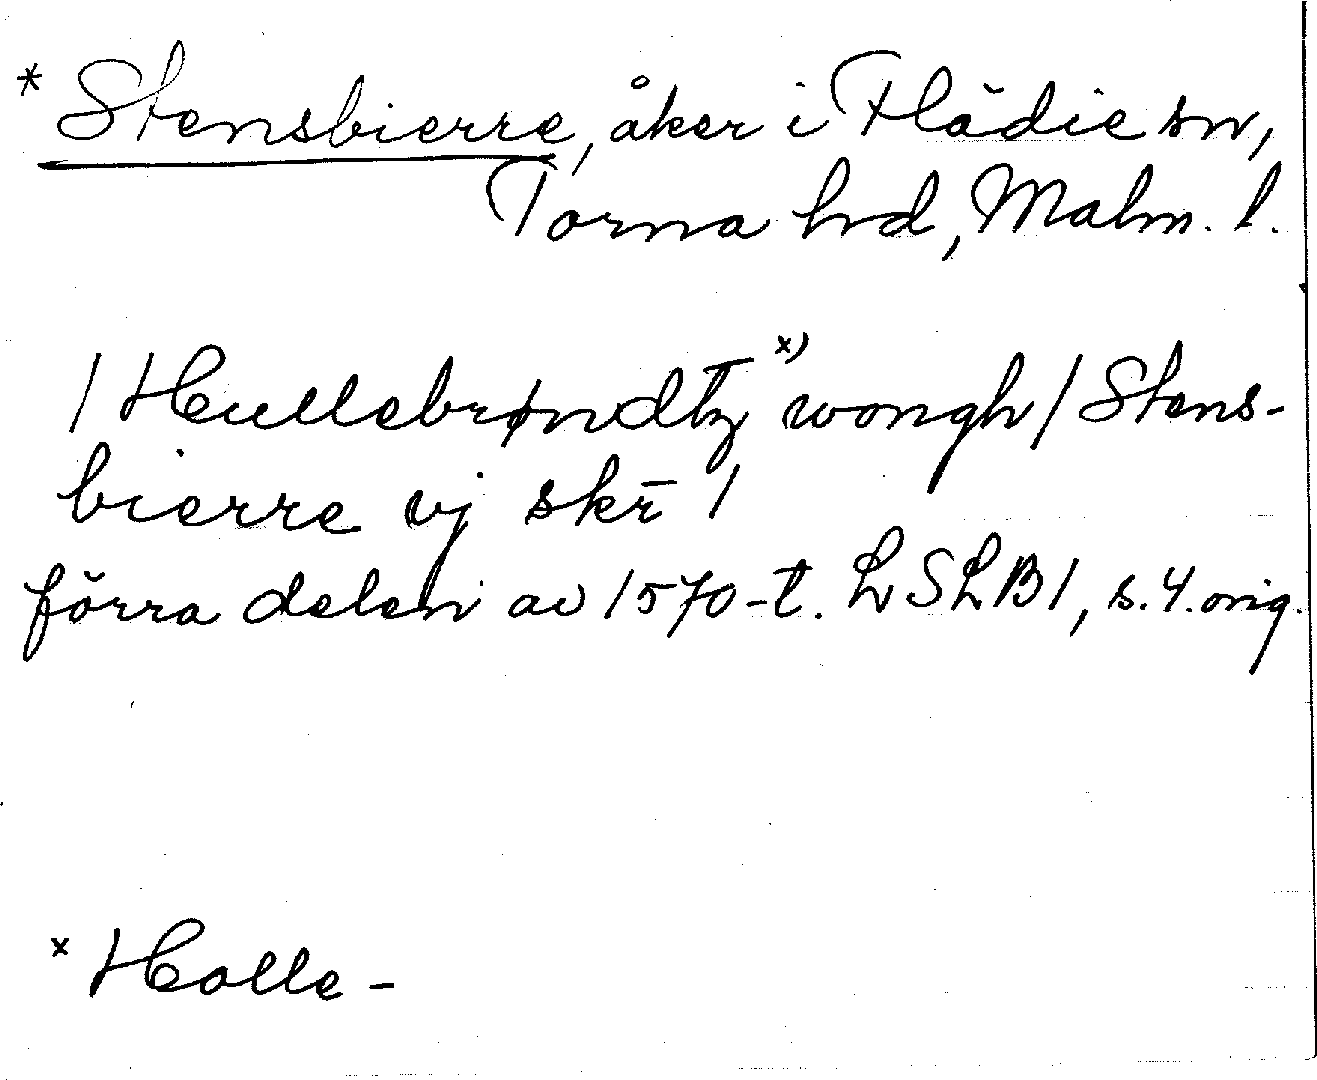 * Stensbierre, åker i Flädie sn,
Torna hd, Malm. l.
/ Hullebrøndtz x) wongh / Stens-
bierre vj skr̄ /
förra delen av 1570-t. LSLB1, s. 4. orig.
x Holle -